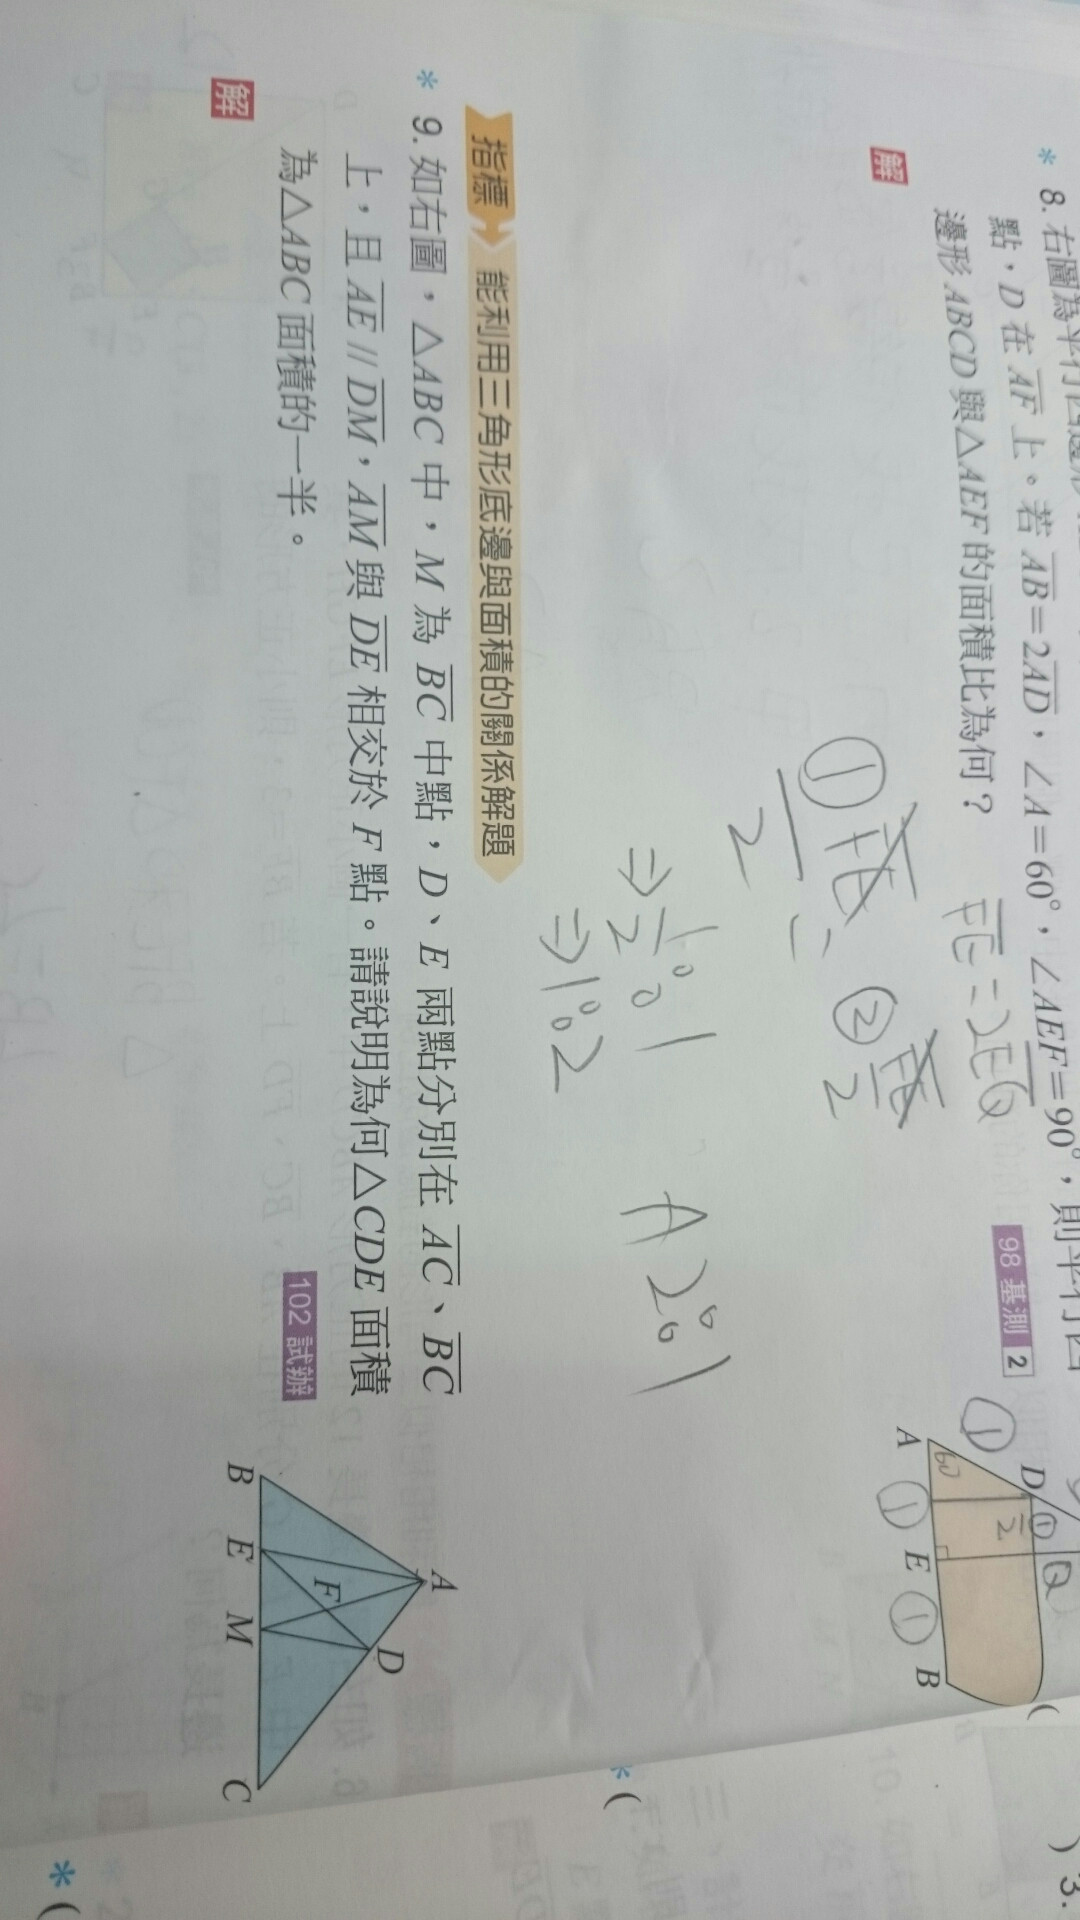 * 8. 右圖為平行四邊形
點，D 在 AF 上。若 AB=2AD，∠A=60°，∠AEF=90°，則平行四
邊形 ABCD 與△AEF 的面積比為何？
98 基測 2
解
FE=2EQ
①FE
2
:
②FE
2
⇒ 1/2 : 1
⇒ 1:2
A 2:1
D ① Q
① 60 2
A ① E ① B
指標 能利用三角形底邊與面積的關係解題
* 9. 如右圖，△ABC 中，M 為 BC 中點，D、E 兩點分別在 AC、BC
上，且 AE // DM，AM 與 DE 相交於 F 點。請說明為何△CDE 面積
為△ABC 面積的一半。
102 試辦
解
A
D
F
B E M C
) 3.
* (
* (